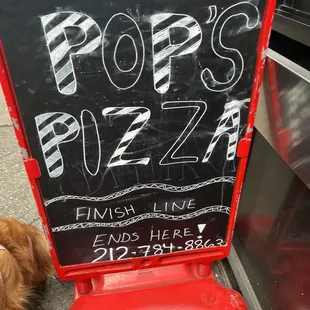 POP'S
PIZZA
FINISH LINE
ENDS HERE!
212-784-8862